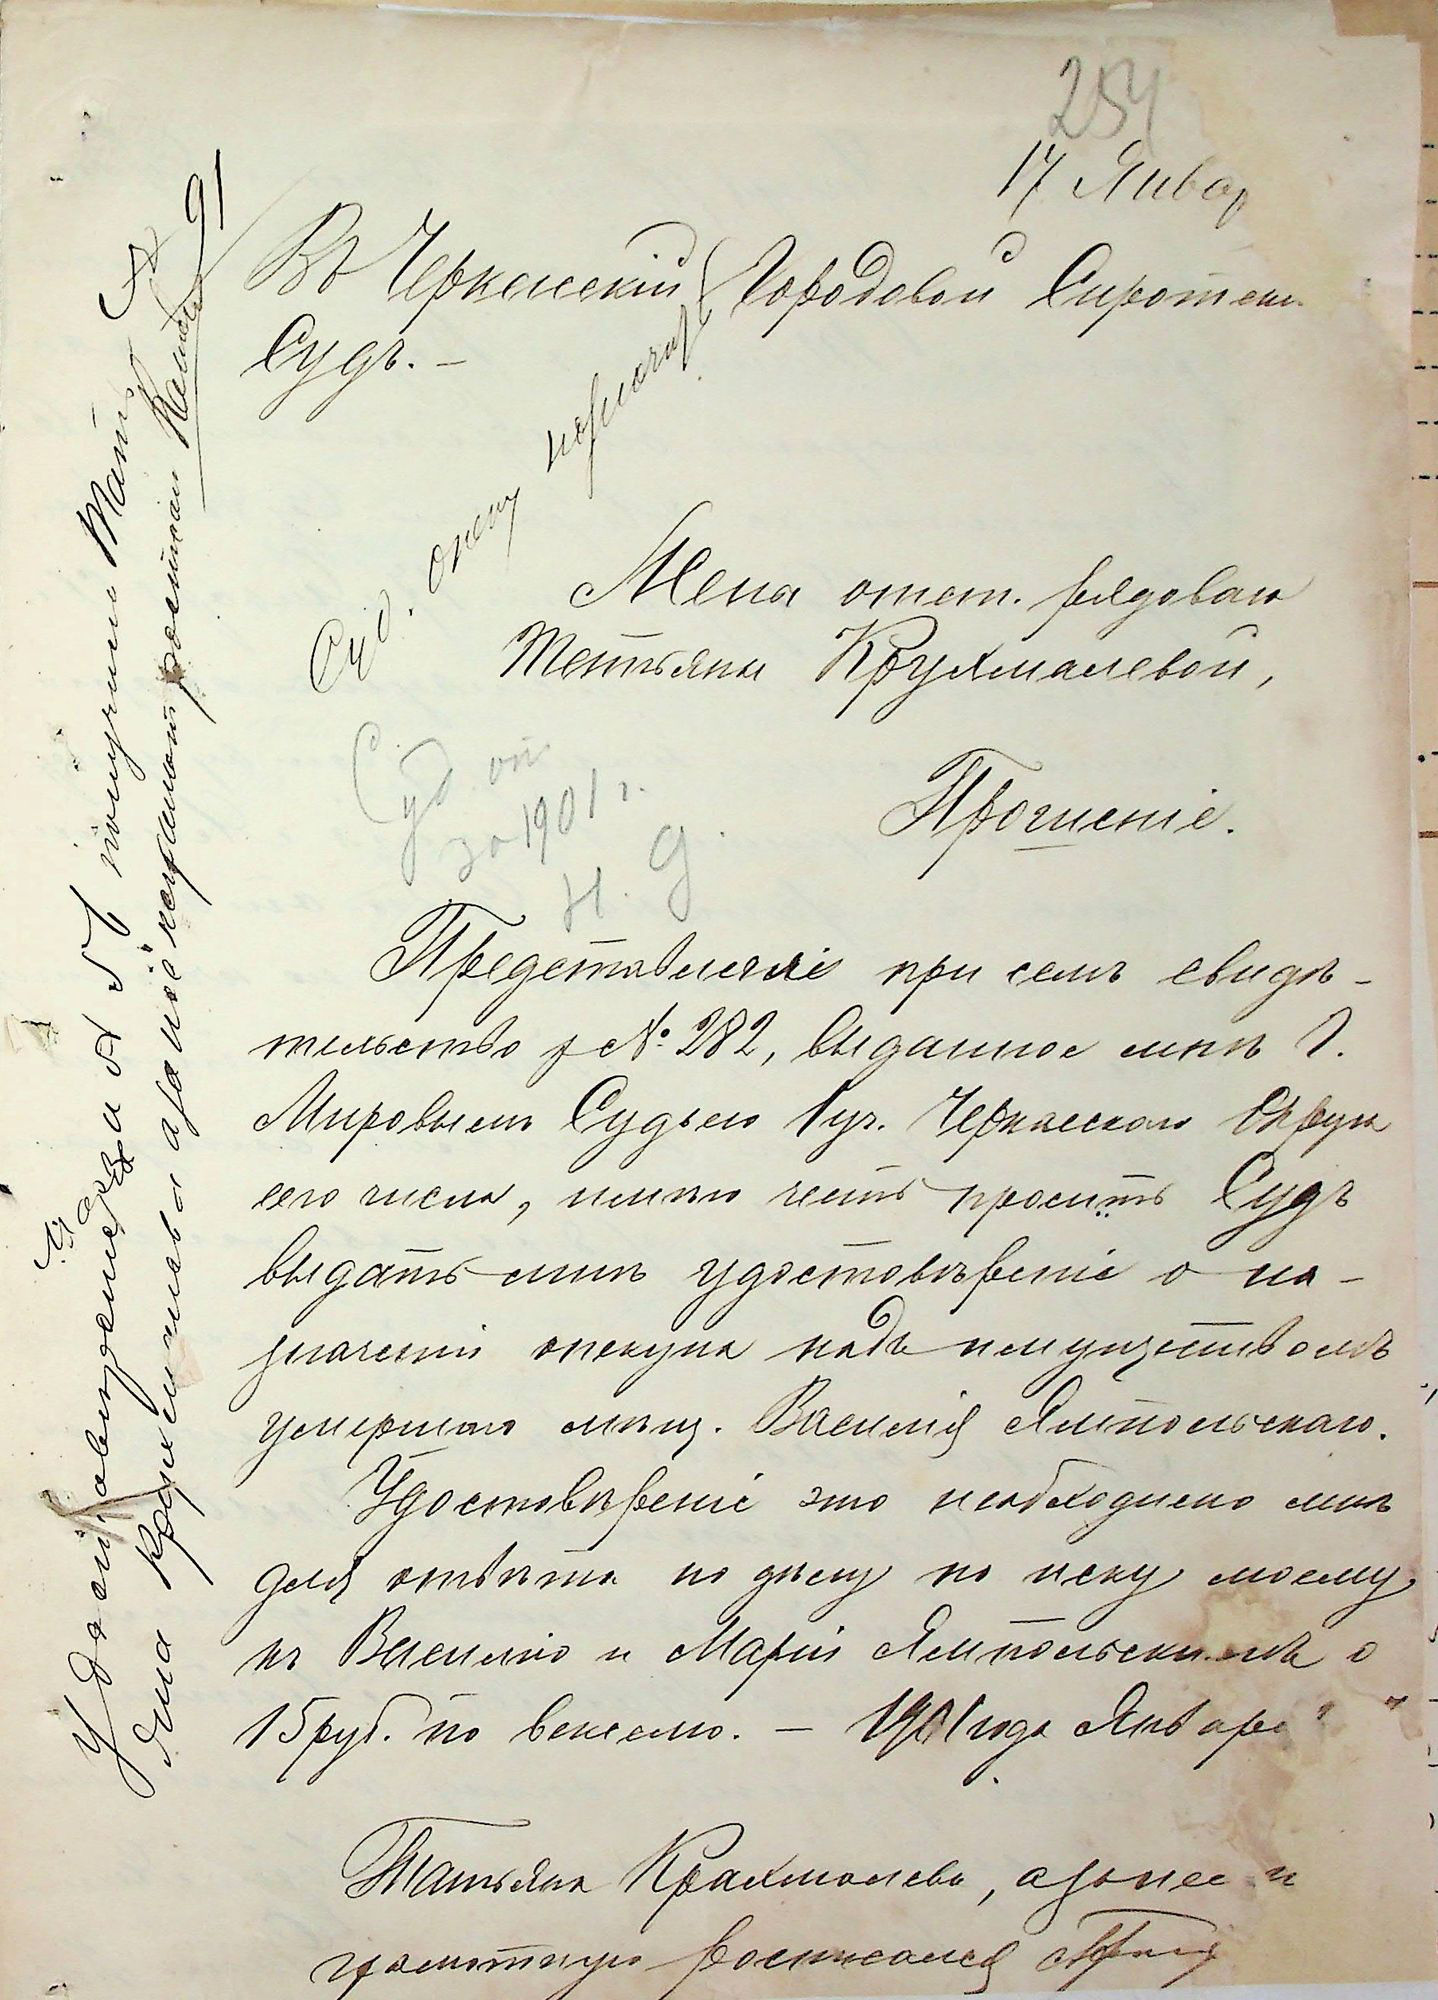 254
17 Январ
Въ Черкасскій Городовой Сиротск
Судъ. –
Жены отст. рядового
Татьяны Крухмалевой,
Прошеніе.
Суд. оп
за 1901 г.
Н. Д.
Представляя при семъ свидѣ-
тельство за № 282, выданное мнѣ Г.
Мировымъ Судьею 1 уч. Черкасскаго Округа
сего числа, имѣю честь просить Судъ
выдать мнѣ удостовѣреніе о на-
значеніи опекуна надъ имуществомъ
умершаго мѣщ. Василія Ямпольскаго.
Удостовѣреніе это необходимо мнѣ
для отвѣта по дѣлу по иску моему
къ Василію и Маріи Ямпольскимъ о
15 руб. по векселю. – 1901 года Января "  "
Татьяна Крахмалева, а за нее не
грамотную росписался
Удостовѣреніе за № 56 получила Тать
яна Крахмалева а за нее неграмот росписал
91